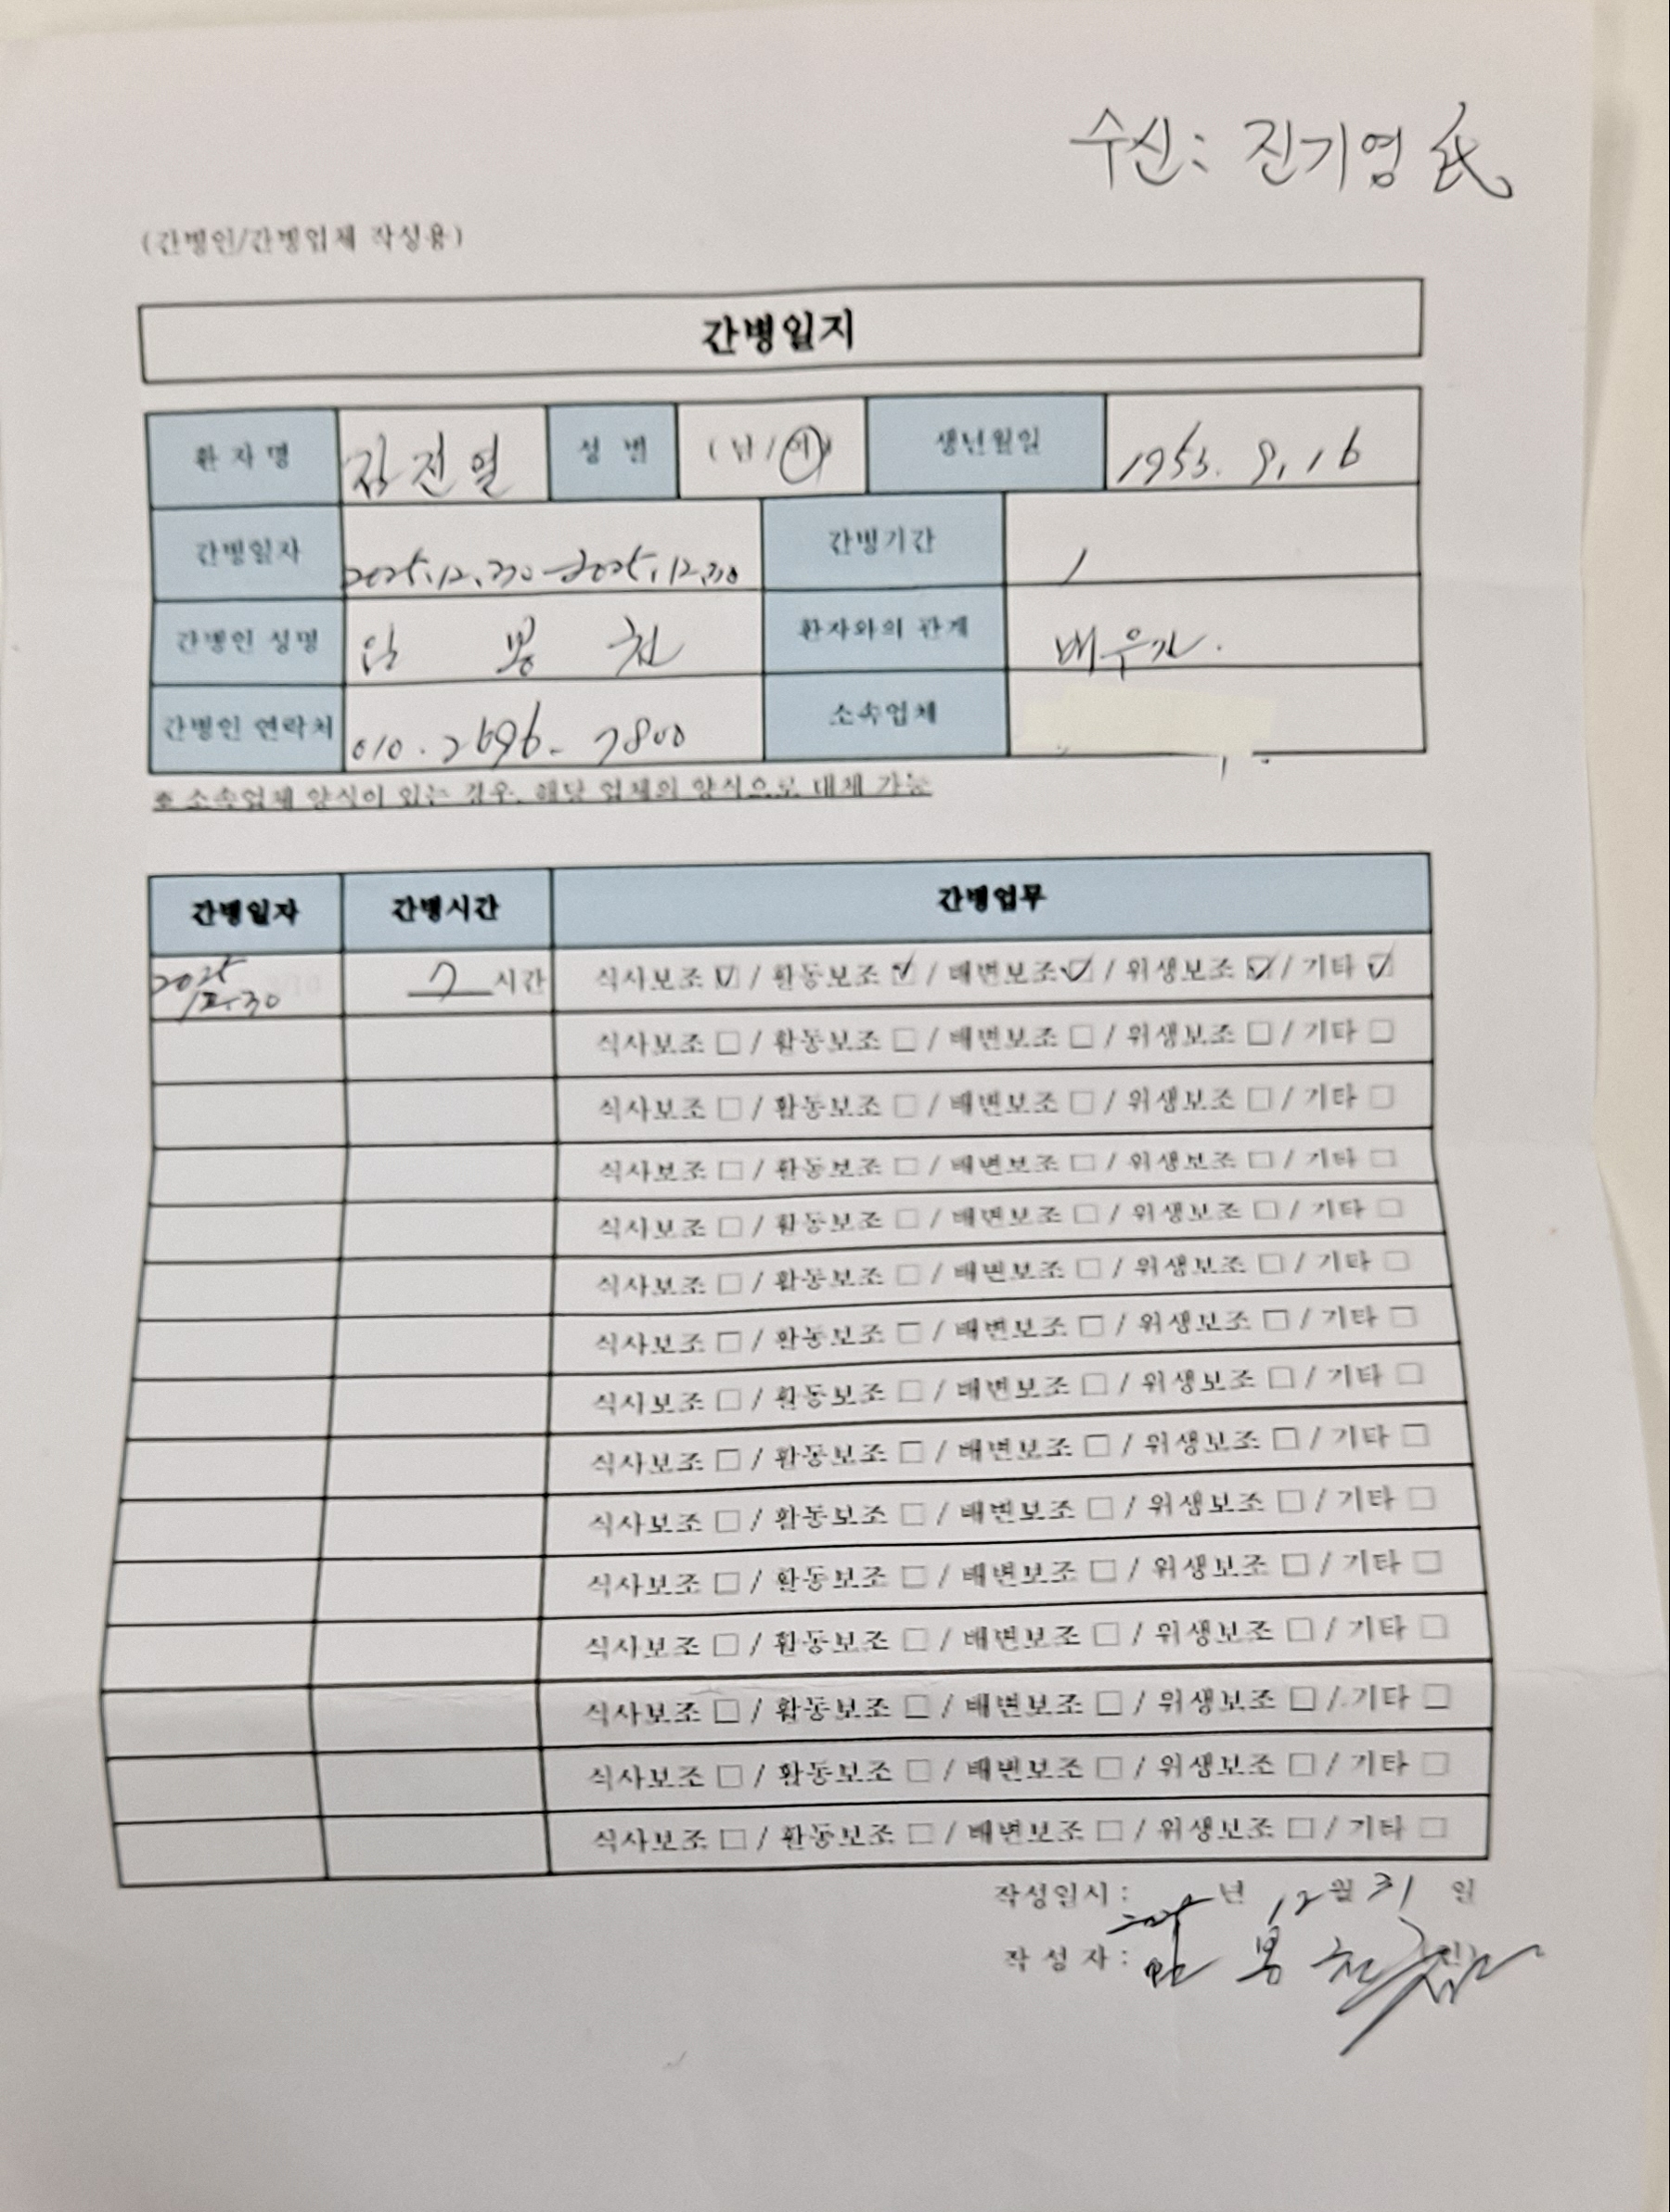 수신: 진기영 氏
(간병인/간병업체 작성용)
간병일지
환 자 명 김진열 성 별 (남/여) 생년월일 1953. 9. 16
간병일자 2025.12.30-2025.12.30 간병기간 1
간병인 성명 안 봉 천 환자와의 관계 배우자.
간병인 연락처 010. 2696- 7800 소속업체
※ 소속업체 양식이 있는 경우, 해당 업체의 양식으로 대체 가능
간병일자 간병시간 간병업무
2025 12.30 7 시간 식사보조 ☑ / 활동보조 ☑ / 배변보조 ☑ / 위생보조 ☑ / 기타 ☑
식사보조 □ / 활동보조 □ / 배변보조 □ / 위생보조 □ / 기타 □
식사보조 □ / 활동보조 □ / 배변보조 □ / 위생보조 □ / 기타 □
식사보조 □ / 활동보조 □ / 배변보조 □ / 위생보조 □ / 기타 □
식사보조 □ / 활동보조 □ / 배변보조 □ / 위생보조 □ / 기타 □
식사보조 □ / 활동보조 □ / 배변보조 □ / 위생보조 □ / 기타 □
식사보조 □ / 활동보조 □ / 배변보조 □ / 위생보조 □ / 기타 □
식사보조 □ / 활동보조 □ / 배변보조 □ / 위생보조 □ / 기타 □
식사보조 □ / 활동보조 □ / 배변보조 □ / 위생보조 □ / 기타 □
식사보조 □ / 활동보조 □ / 배변보조 □ / 위생보조 □ / 기타 □
식사보조 □ / 활동보조 □ / 배변보조 □ / 위생보조 □ / 기타 □
식사보조 □ / 활동보조 □ / 배변보조 □ / 위생보조 □ / 기타 □
식사보조 □ / 활동보조 □ / 배변보조 □ / 위생보조 □ / 기타 □
식사보조 □ / 활동보조 □ / 배변보조 □ / 위생보조 □ / 기타 □
식사보조 □ / 활동보조 □ / 배변보조 □ / 위생보조 □ / 기타 □
작성일시 : 2025 년 12 월 31 일
작 성 자 : 안 봉 천